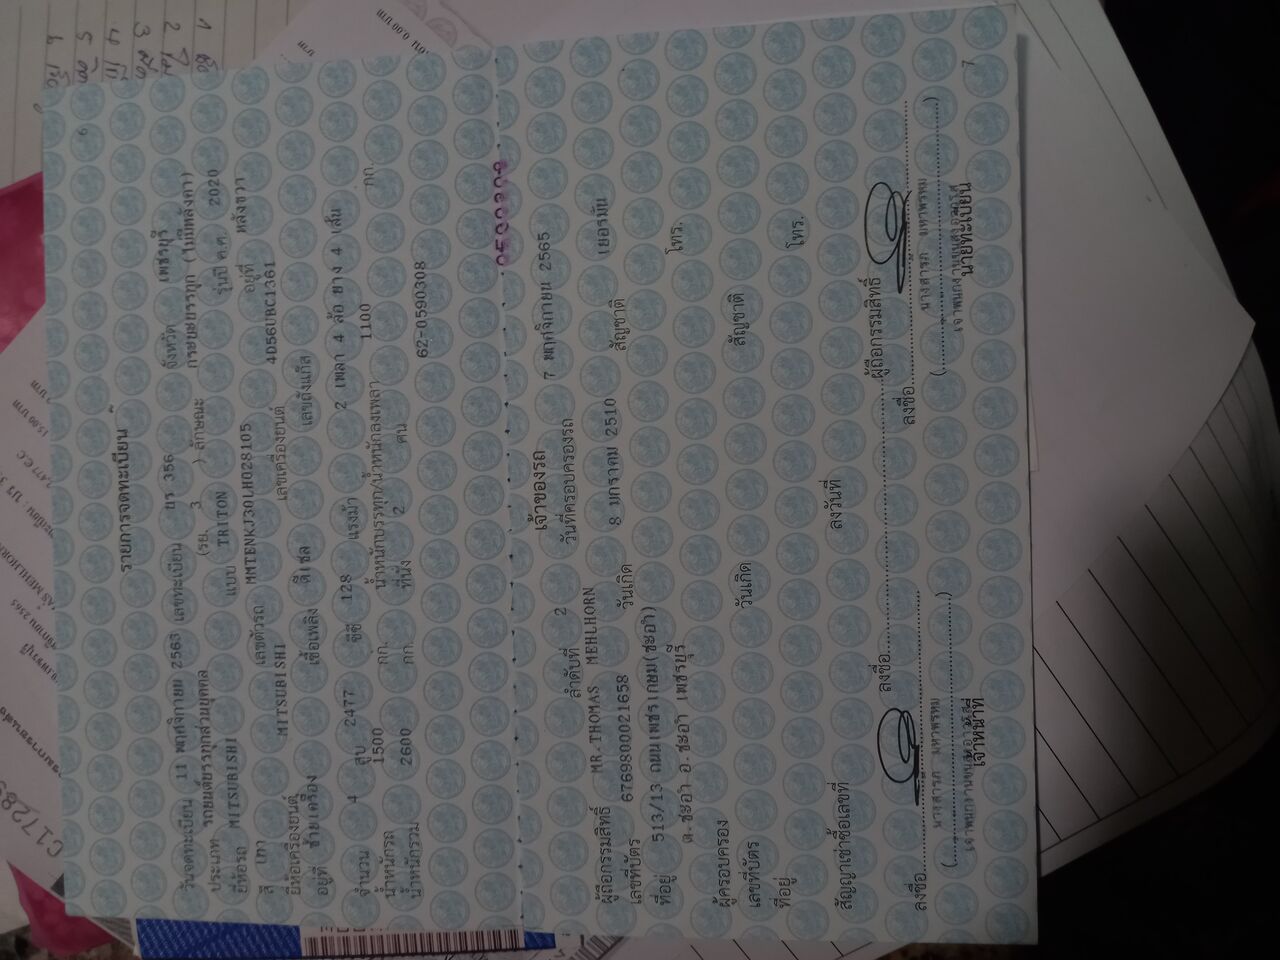 6
รายการจดทะเบียน
วันจดทะเบียน 11 พฤศจิกายน 2563 เลขทะเบียน ยร 356 จังหวัด เพชรบุรี
ประเภท รถยนต์บรรทุกส่วนบุคคล (รย. 3 ) ลักษณะ กระบะบรรทุก (ไม่มีหลังคา)
ยี่ห้อรถ MITSUBISHI แบบ TRITON รุ่นปี ค.ศ. 2020
สี เทา เลขตัวรถ MMTENKJ30LH028105 อยู่ที่ หลังขวา
ยี่ห้อเครื่องยนต์ MITSUBISHI เลขเครื่องยนต์ 4D56UBC1361
อยู่ที่ ซ้ายเครื่อง เชื้อเพลิง ดีเซล เลขถังแก๊ส
จำนวน 4 สูบ 2477 ซีซี 128 แรงม้า 2 เพลา 4 ล้อ ยาง 4 เส้น
น้ำหนักรถ 1500 กก. น้ำหนักบรรทุก/น้ำหนักลงเพลา 1100 กก.
น้ำหนักรวม 2600 กก. ที่นั่ง 2 คน
62-0590308
เจ้าของรถ
ลำดับที่ 2 วันที่ครอบครองรถ 7 พฤศจิกายน 2565
ผู้ถือกรรมสิทธิ์ MR.THOMAS MEHLHORN
เลขที่บัตร 6769800021658 วันเกิด 8 มกราคม 2510 สัญชาติ เยอรมัน
ที่อยู่ 513/13 ถนนเพชรเกษม(ชะอำ)
ต.ชะอำ อ.ชะอำ เพชรบุรี โทร.
ผู้ครอบครอง
เลขที่บัตร วันเกิด สัญชาติ
ที่อยู่
โทร.
สัญญาเช่าซื้อเลขที่ ลงวันที่
ลงชื่อ ผู้ถือกรรมสิทธิ์
ลงชื่อ ลงชื่อ
นางสารภ มหาพรหม นางสารภ มหาพรหม
เจ้าหน้าที่ นายทะเบียน
7